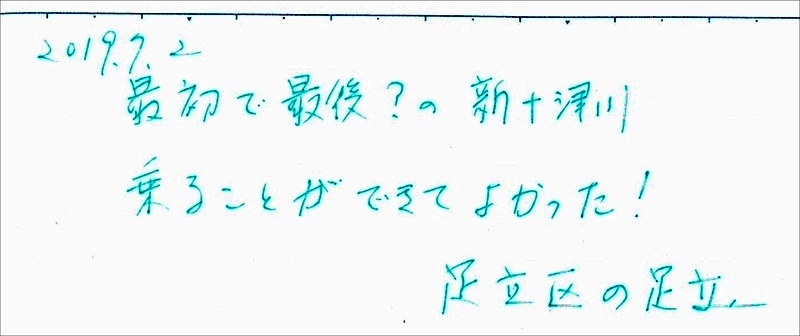 2019.7.2
最初で最後?の新十津川
乗ることができてよかった!
足立区の足立